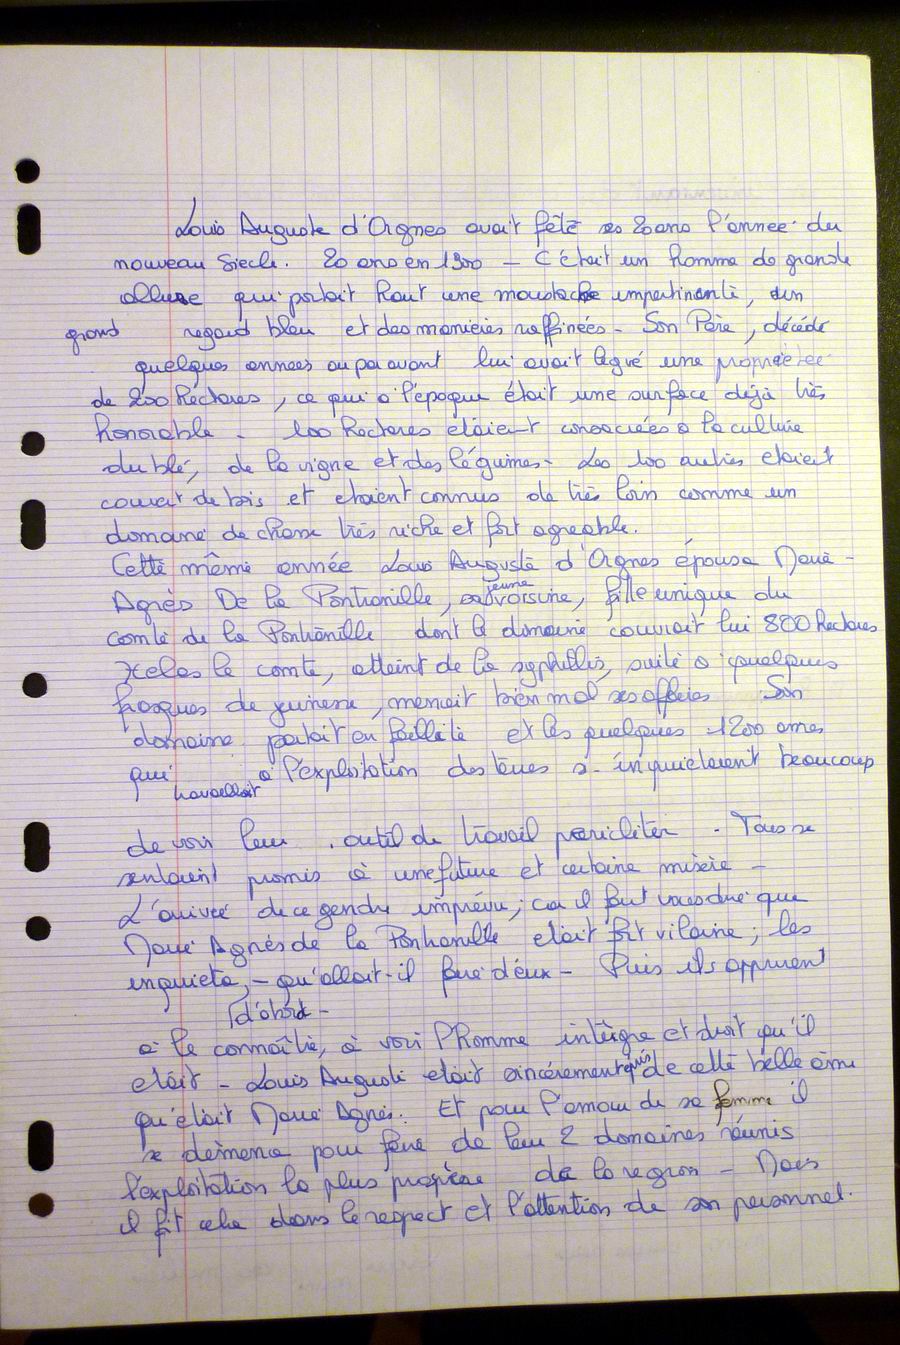 Louis Auguste d'Orgnes avait fêté ses 20 ans l'année du
nouveau siècle. 20 ans en 1900 – C'était un homme de grande
allure qui portait haut une moustache impertinente, un
grand regard bleu et des manières raffinées – Son Père, décédé
quelques années auparavant lui avait légué une propriétée
de 200 hectares, ce qui à l'époque était une surface déjà très
honorable – 100 hectares étaient consacrées à la culture
du blé, de la vigne et des légumes – Les 100 autres étaient
couvert de bois et étaient connus de très loin comme un
domaine de chasse très riche et fort agréable.
Cette même année Louis Auguste d'Orgnes épousa Marie –
Agnès De la Ponthanille, jeune voisine, fille unique du
comte de la Ponthanille dont le domaine couvrait lui 800 hectares
Hélas le comte, atteint de la syphillis, suite à quelques
frasques de jeunesse, menait bien mal ses affaires Son
domaine partait en faillite et les quelques 1200 ames
qui travaillait à l'exploitation des terres s'inquietaient beaucoup
de voir leur outil de travail péricliter – Tous se
sentaient promis à une future et certaine misère –
L'arrivée de ce gendre imprévu, car il faut vous dire que
Marie Agnès de la Ponthanille était fort vilaine; les
inquieta, – qu'allait-il faire d'eux – Puis ils apprirent
d'abord –
à le connaître, à voir l'Homme intègre et droit qu'il
était – Louis Auguste était sincèrement épris de cette belle âme
qu'était Marie Agnès. Et pour l'amour de sa femme il
se démena pour faire de leur 2 domaines réunis
l'exploitation la plus prospère de la region – Mais
il fit cela dans le respect et l'attention de son personnel.